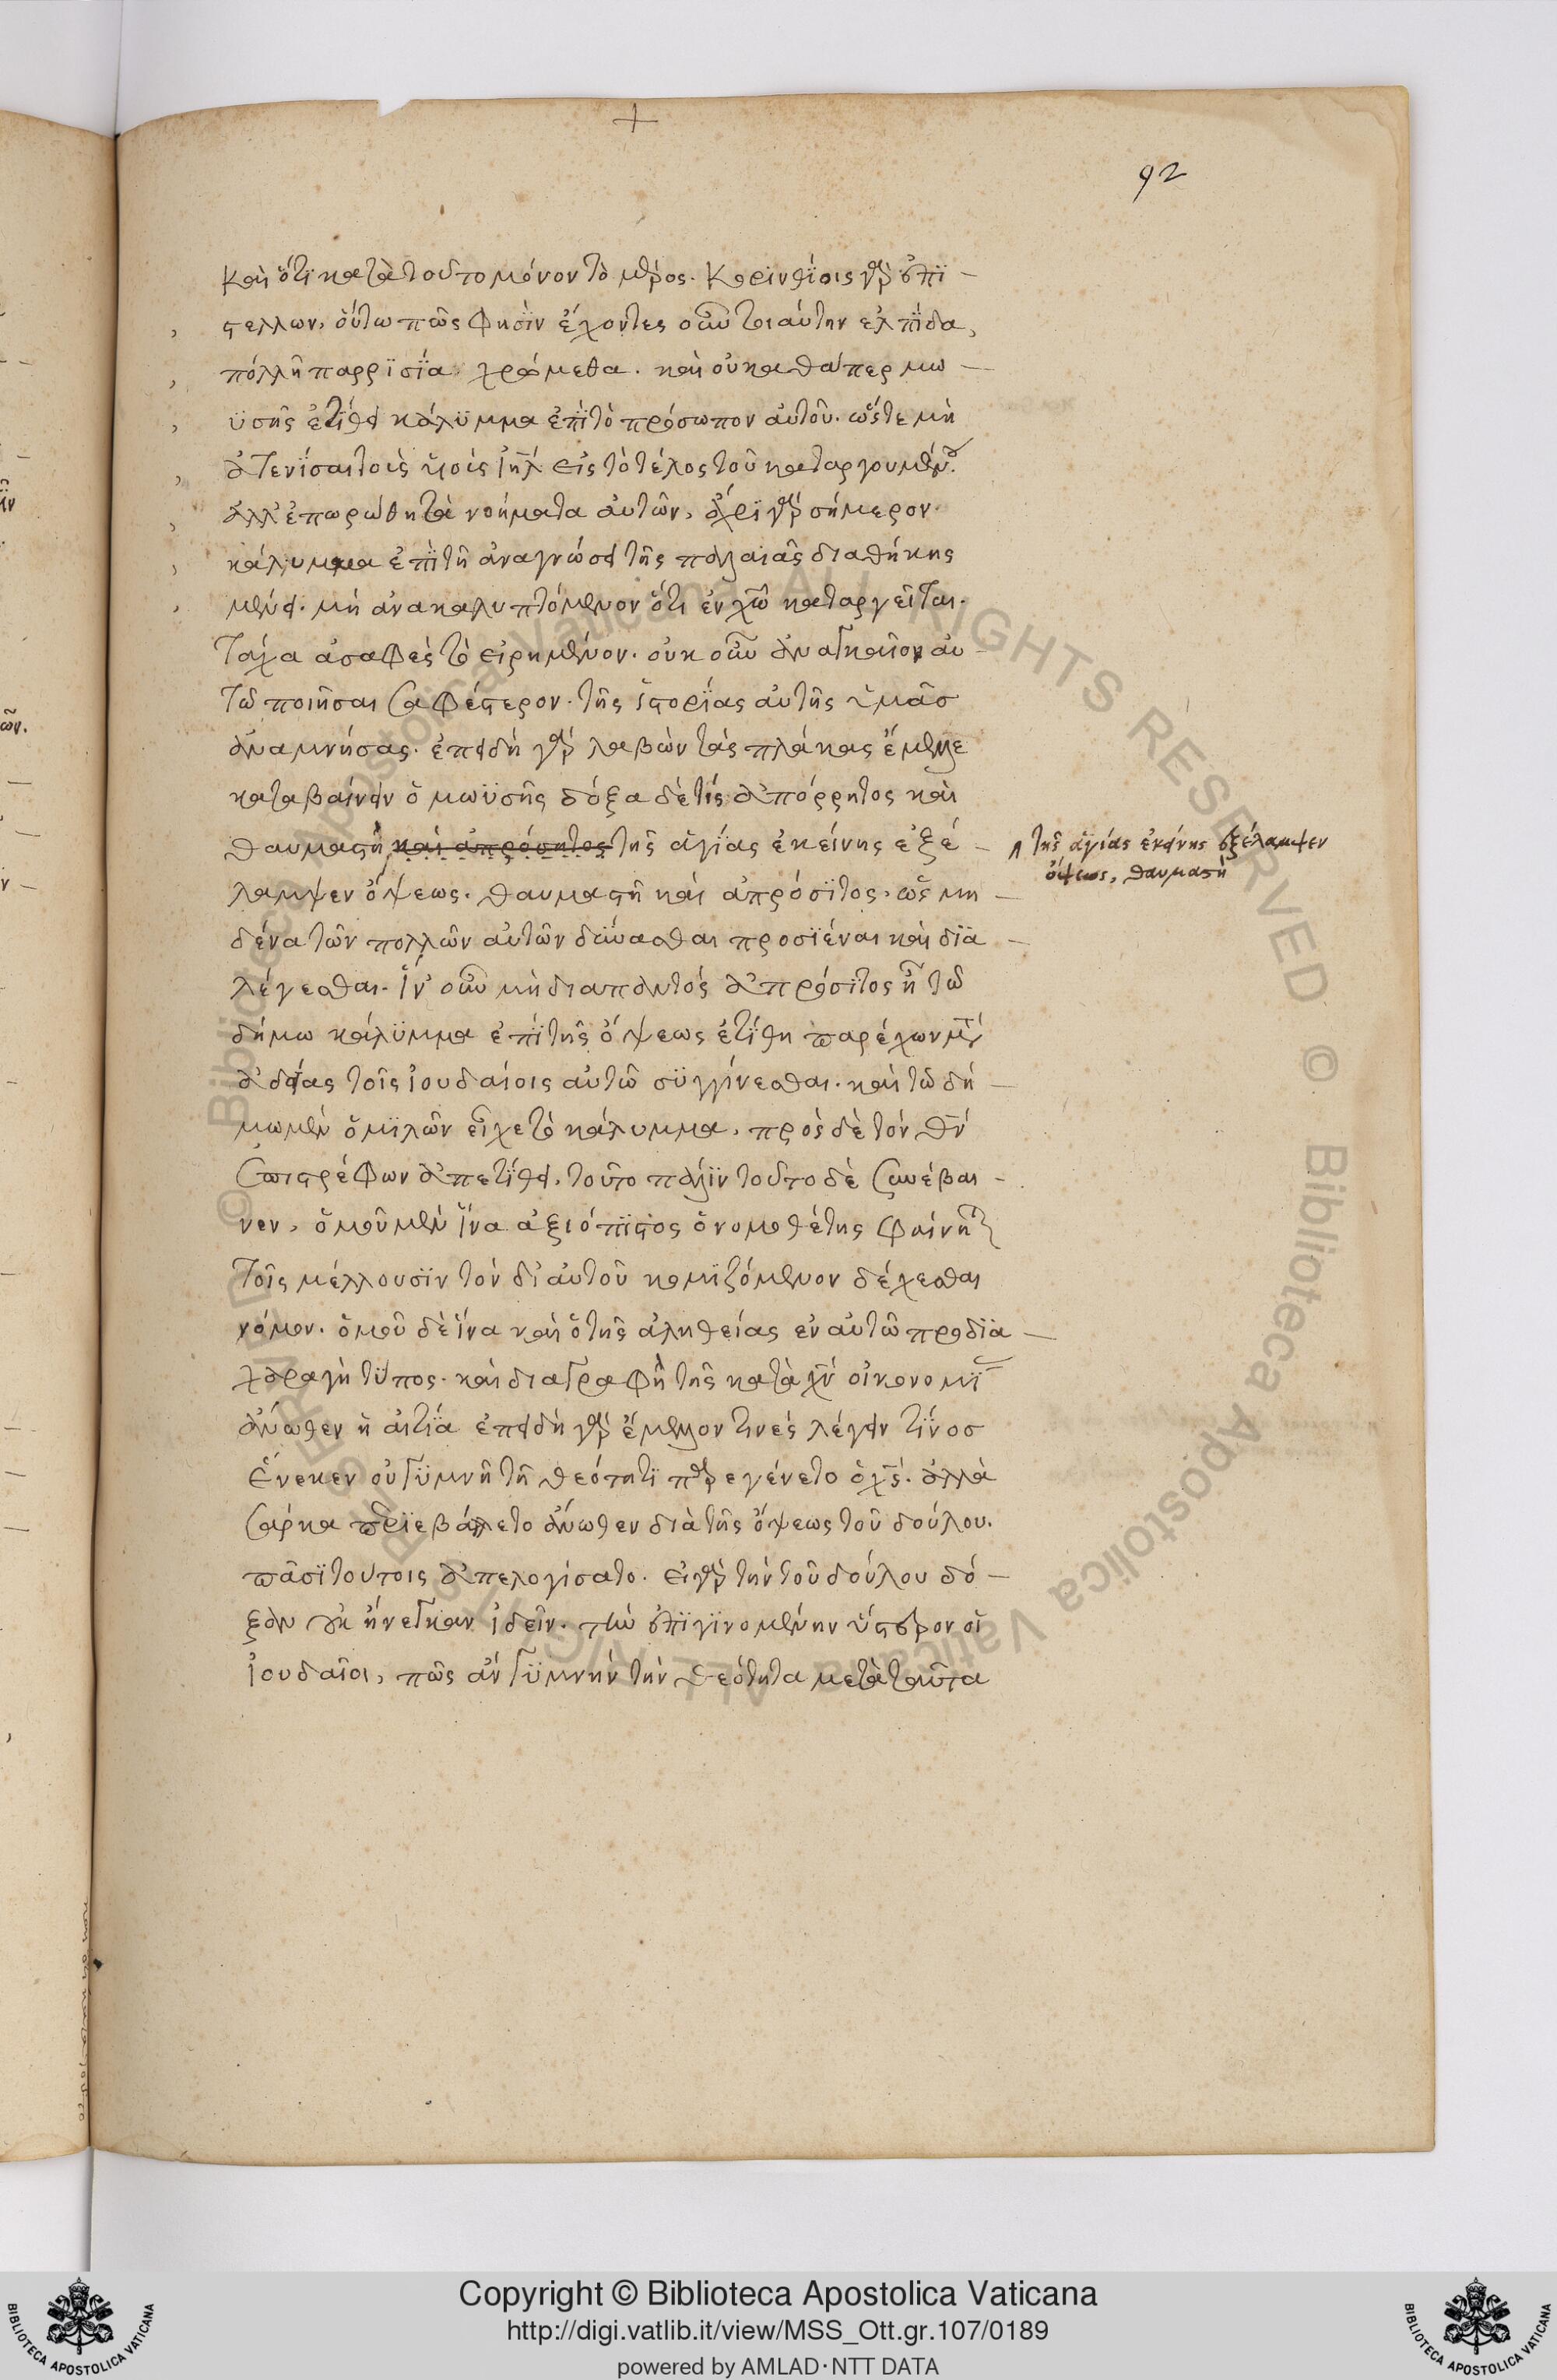 +
92
καὶ ὅτϊ κατὰ τοῦτο μόνον τὸ μέρος. Κορϊνθίοις γὰρ ἐπϊ -
στελλων, οὕτω πῶς φησὶν ἔχοντες οὖν τοιάυτην ελπίδα,
πόλλῆ παρρϊσία χρόμεθα. καὶ οὐκαθάπερ μω -
ϋσῆς ἐτίθει κάλϋμμα ἐπὶ τὸ πρόσωπον ἀυτοῦ. ὥστε μὴ
ἀτενίσαι τοὶς ϋἱοὶς ἰηλ εἰς τὸ τέλος τοῦ καταργουμένου.
ἀλλ' ἐπωρώθη τὰ νοήματα ἀυτῶν, ἄχρϊ γὰρ σήμερον.
κάλυμμα ἐπὶ τῆ ἀναγνώσει τῆς παλαιᾶς διαθήκης
μένει. μὴ ἀνακαλυπτόμενον ὅτι ἐν χῶ καταργεῖται.
Τάχα ἀσαφὲς τὸ εἰρημένον. οὐκ οὖν ἀναγκαῖον ἀυ -
τῶ ποιῆσαι σαφέστερον. τῆς ἱστορίας ἀυτῆς ὑμᾶσ
ἀναμνήσας. ἐπειδὴ γὰρ λαβὼν τὰς πλάκας ἔμελλε
καταβαίνειν ὁ μωϋσῆς δόξα δὲ τίς ἀπόρρητος καὶ
θαυμαστὴ καὶ ἀπρόσητος τῆς ἁγίας ἐκείνης ἐξέ -
⁁ τῆς ἁγίας ἐκείνης ἐξέλαμψεν
ὄψεως, θαυμαστὴ
λαμψεν ὄψεως. θαυμαστὴ καὶ ἀπρόσϊτος. ὡς μη -
δένα τῶν πολλῶν ἀυτῶν δύνασθαι προσϊέναι καὶ δϊα -
λέγεσθαι. ἵν' οὖν μὴ διαπαντός ἀπρόσϊτος ἦ τῶ
δήμω κάλϋμμα ἐπὶ τῆς ὄψεως ἐτίθη παρέχων μετ'
ἀδείας τοῖς ἰουδαίοις ἀυτῶ συγγίνεσθαι. καὶ τῶ δή -
μωμὲν ὁμϊλῶν εἶχε τὸ κάλυμμα, πρὸς δὲ τὸν θν
ἐπιστρέφων ἀπετίθει. τοῦτο πάλιν τοῦτο δὲ συνέβαι -
νεν, ὁμοῦ μὲν ἵνα ἀξιόπϊστος ὁ νομοθέτης φαίνηται
Τοῖς μέλλουσϊν τὸν δϊ ἀυτοῦ κομϊζόμενον δέχεσθαι
νόμον. ὁμοῦ δὲ ἵνα καὶ ὁ τῆς ἀληθείας εν ἀυτῶ προδϊα -
χαραγῆ τύπος. καὶ διαγραφῆ τῆς κατὰ χν οἰκονομίας
ἄνωθεν ἡ ἀιτία ἐπειδὴ γὰρ ἔμελλον τινὲς λέγειν τίνοσ
Ἕνεκεν οὐ γυμνῆ τῆ θεότητϊ παρεγένετο ὁ χς. ἀλλὰ
Σάρκα περϊεβάλλετο ἄνωθεν διὰ τῆς ὄψεως τοῦ δούλου.
πᾶσϊ τουτοις ἀπελογίσατο. εἰ γὰρ τὴν τοῦ δούλου δό -
ξαν οὐκ ἤνεγκαν ἰδεῖν. τὴν ἐπϊγϊνομένην ὕστερον οἱ
ἰουδαῖοι, πῶς ἀν γϋμνὴν τὴν θεότητα μετὰ ταῦτα
Copyright © Biblioteca Apostolica Vaticana
http://digi.vatlib.it/view/MSS_Ott.gr.107/0189
powered by AMLAD·NTT DATA